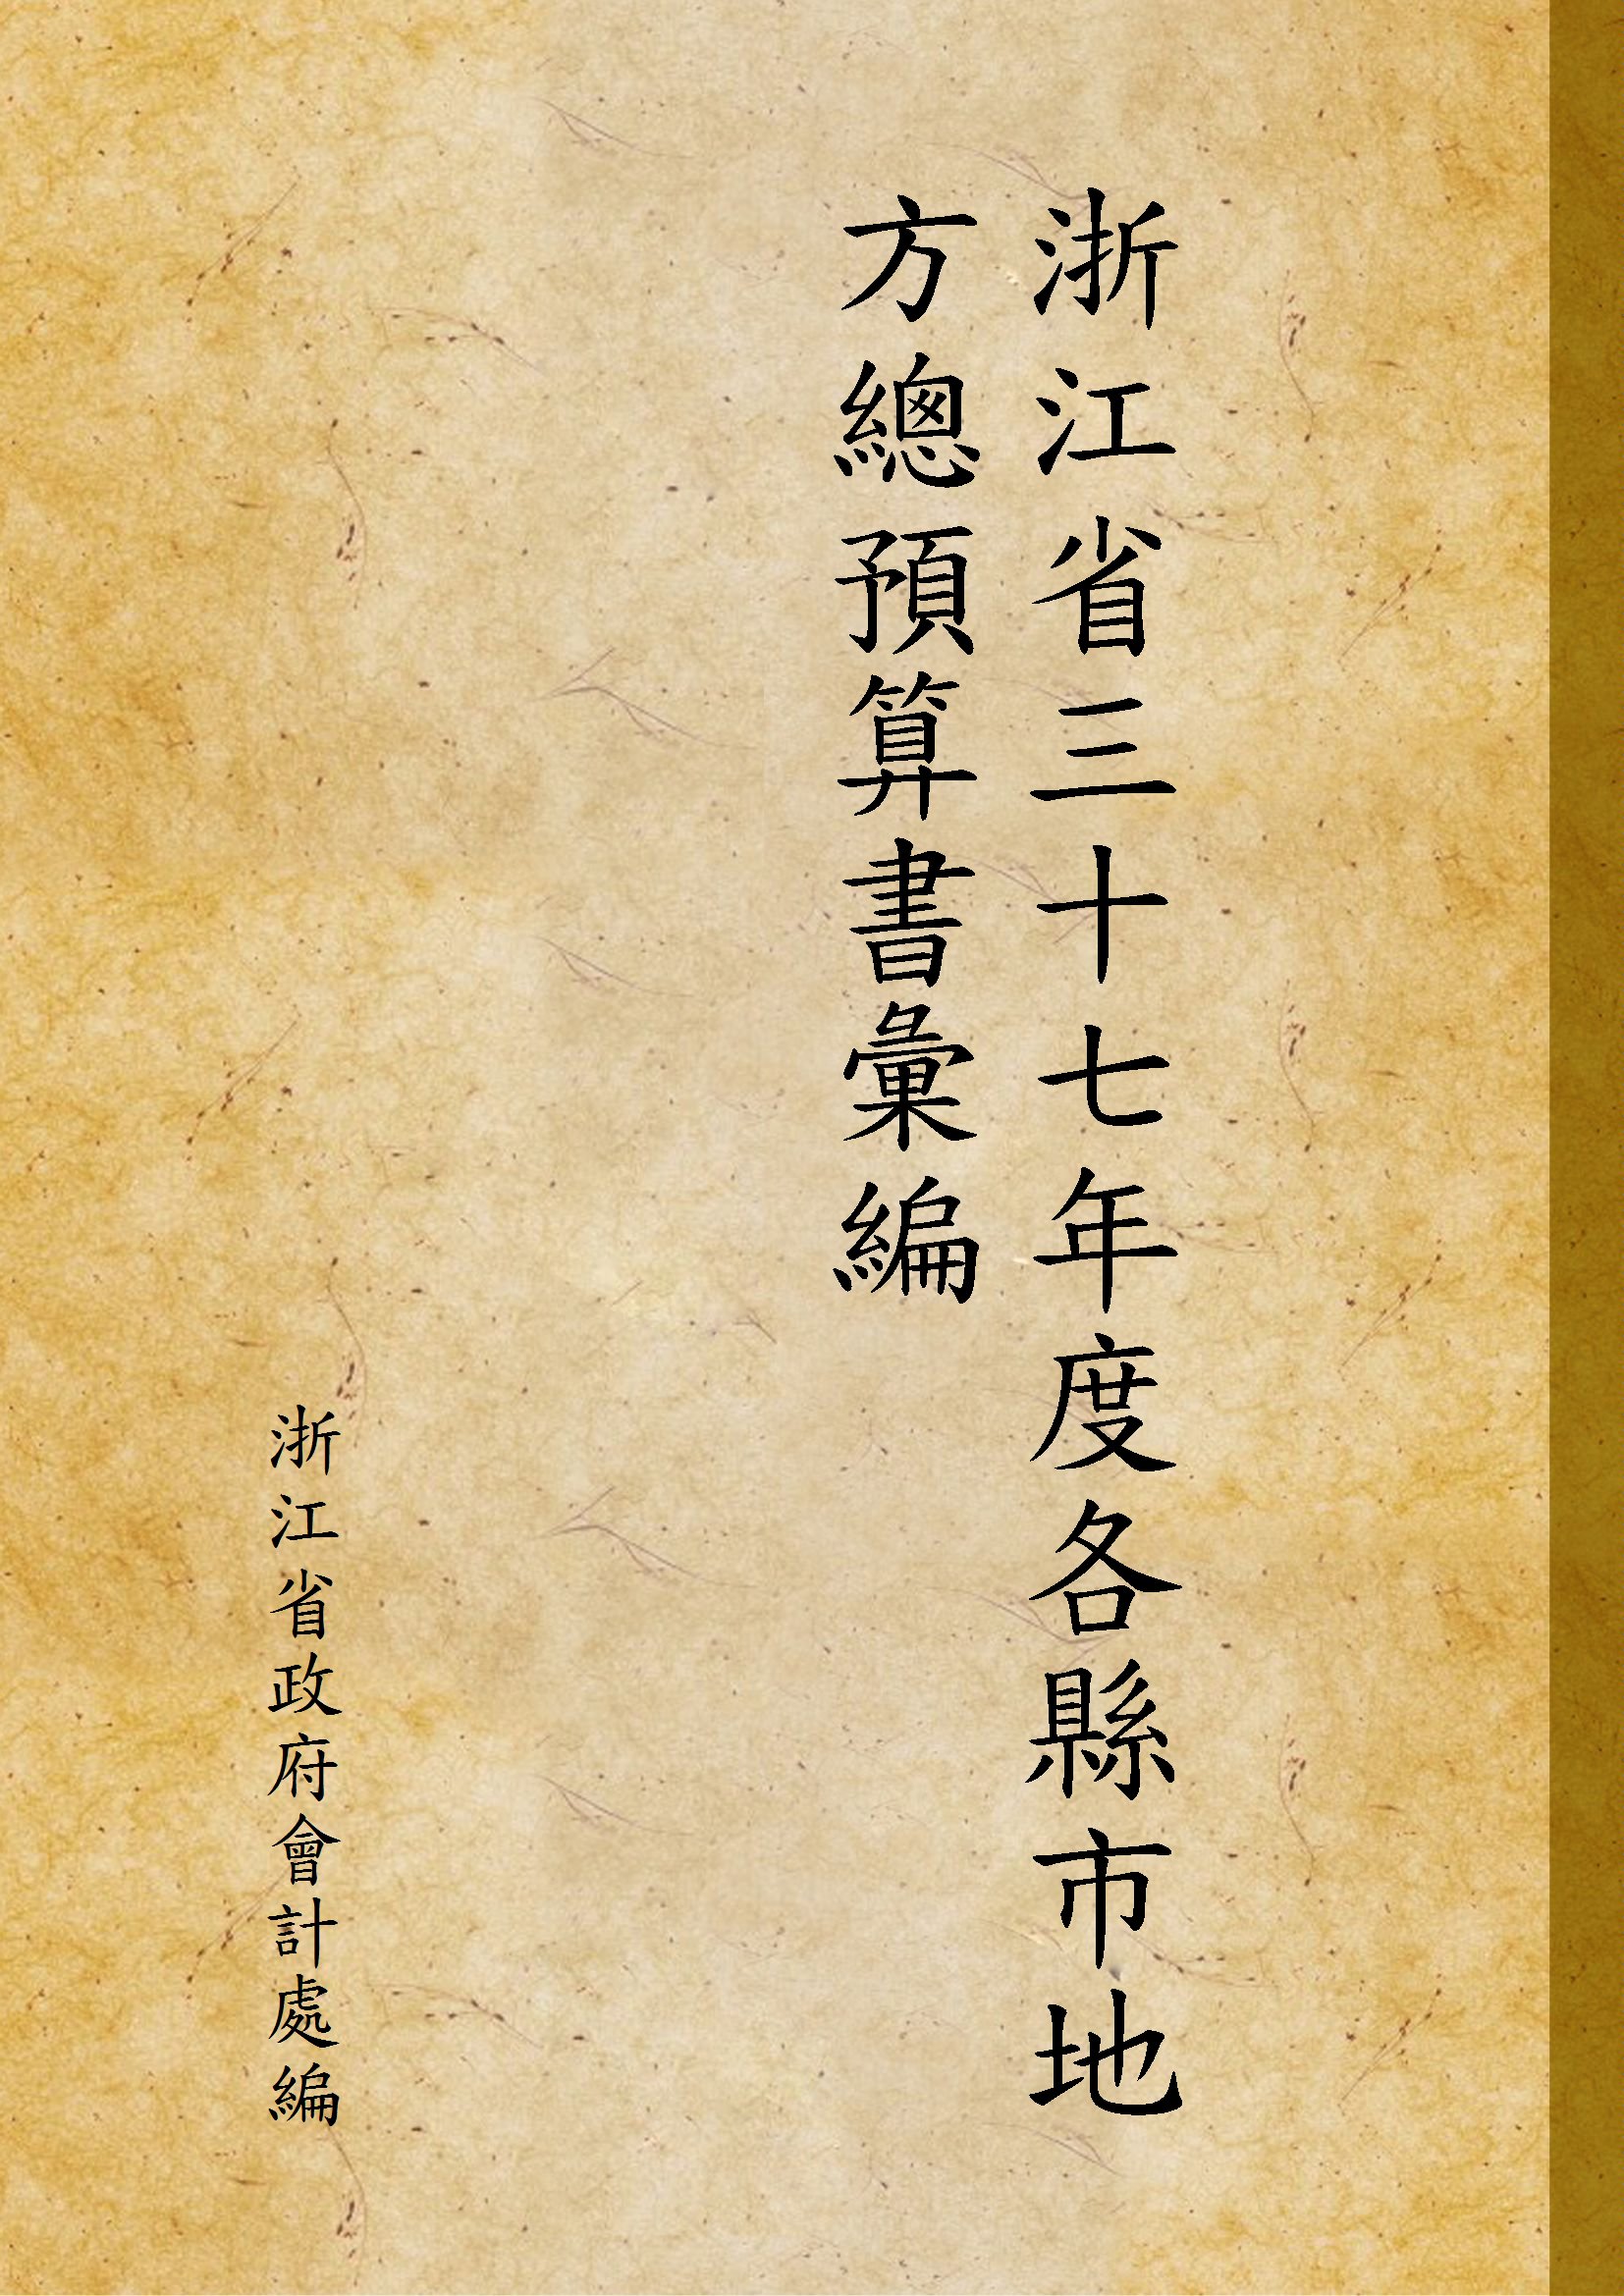 浙江省三十七年度各縣市地
方總預算書彙編
浙江省政府會計處編